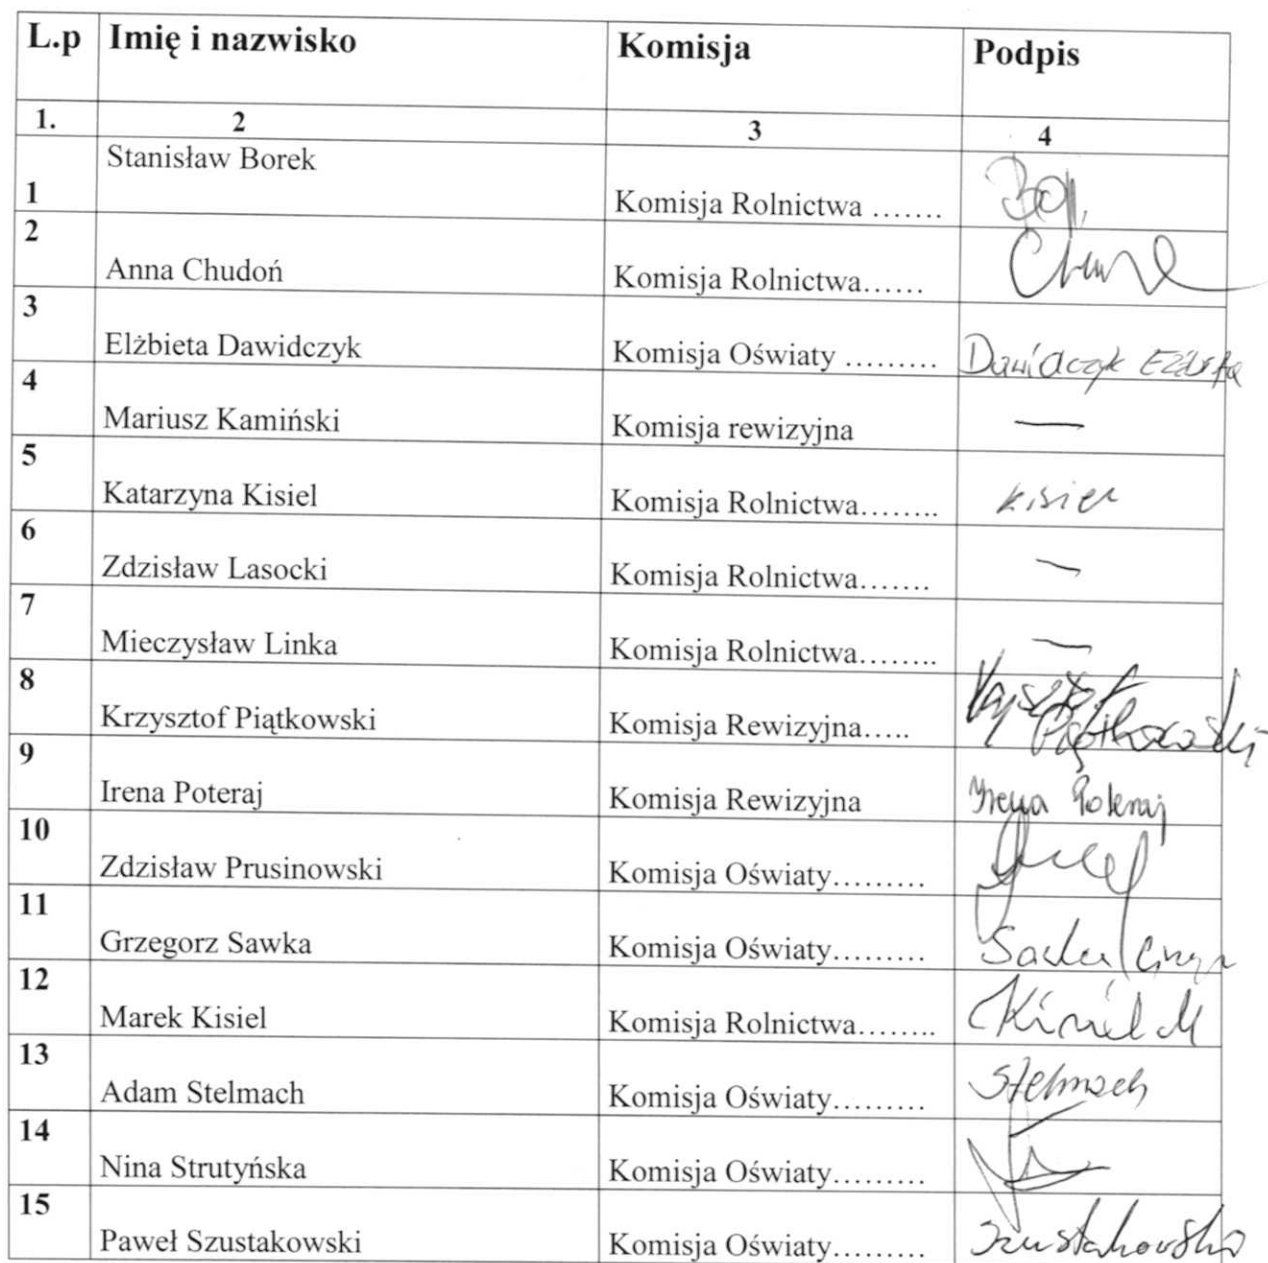 L.p Imię i nazwisko Komisja Podpis
1. 2 3 4
1 Stanisław Borek Komisja Rolnictwa .......
2 Anna Chudoń Komisja Rolnictwa......
3 Elżbieta Dawidczyk Komisja Oświaty ......... Dawidczyk Elżbieta
4 Mariusz Kamiński Komisja rewizyjna —
5 Katarzyna Kisiel Komisja Rolnictwa........ Kisiel
6 Zdzisław Lasocki Komisja Rolnictwa....... —
7 Mieczysław Linka Komisja Rolnictwa........ —
8 Krzysztof Piątkowski Komisja Rewizyjna..... Krzysztof Piątkowski
9 Irena Poteraj Komisja Rewizyjna Irena Poteraj
10 Zdzisław Prusinowski Komisja Oświaty.........
11 Grzegorz Sawka Komisja Oświaty......... Sawka
12 Marek Kisiel Komisja Rolnictwa........ Kisiel M
13 Adam Stelmach Komisja Oświaty......... Stelmach
14 Nina Strutyńska Komisja Oświaty.........
15 Paweł Szustakowski Komisja Oświaty......... Szustakowski